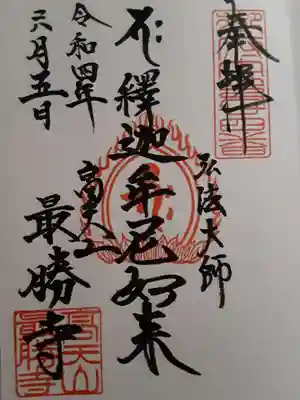 奉拝
弘法大師
釋迦牟尼如来
高天山
最勝寺
令和四年
六月五日
高天山
最勝寺